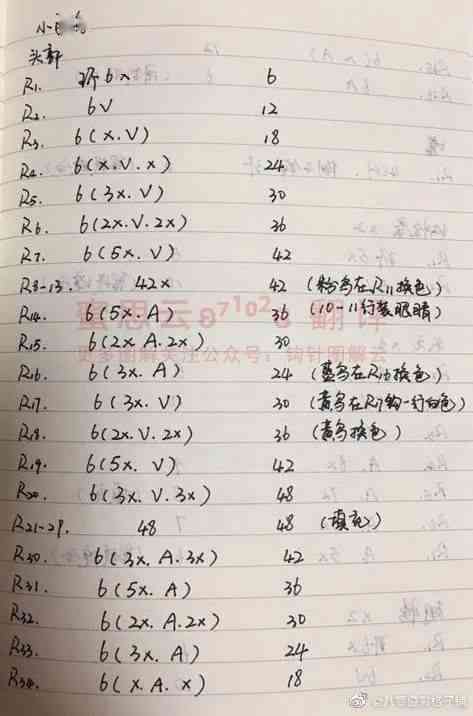 小
头部
R1. 环6x 6
R2. 6V 12
R3. 6(x.V) 18
R4. 6(x.V.x) 24
R5. 6(3x.V) 30
R6. 6(2x.V.2x) 36
R7. 6(5x.V) 42
R8-13. 42x 42 (粉鸟在R11换色)
R14. 6(5x.A) 36 (10-11行装眼睛)
蜜思云 翻译
R15. 6(2x.A.2x) 30
更多图解关注公众号:钩针图解云
R16. 6(3x.A) 24 (蓝鸟在R16换色)
R17. 6(3x.V) 30 (黄鸟在R17钩一行白色)
R18. 6(2x.V.2x) 36 (黄鸟换色)
R19. 6(5x.V) 42
R20. 6(3x.V.3x) 48
R21-29. 48 48 (填充)
R30. 6(3x.A.3x) 42
R31. 6(5x.A) 36
R32. 6(2x.A.2x) 30
R33. 6(3x.A) 24
R34. 6(x.A.x) 18